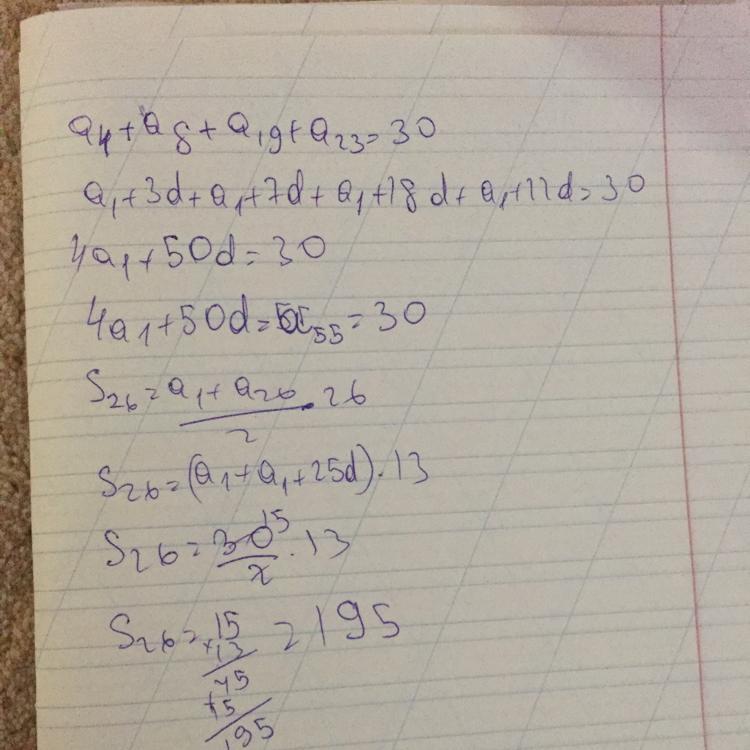 a₄+a₈+a₁₉+a₂₃=30
a₁+3d+a₁+7d+a₁+18d+a₁+22d=30
4a₁+50d=30
4a₁+50d=a₅₅=30
S₂₆=a₁+a₂₆/2·26
S₂₆=(a₁+a₁+25d)·13
S₂₆=30/2 15·13
S₂₆=15=195
×13
45
+15
195